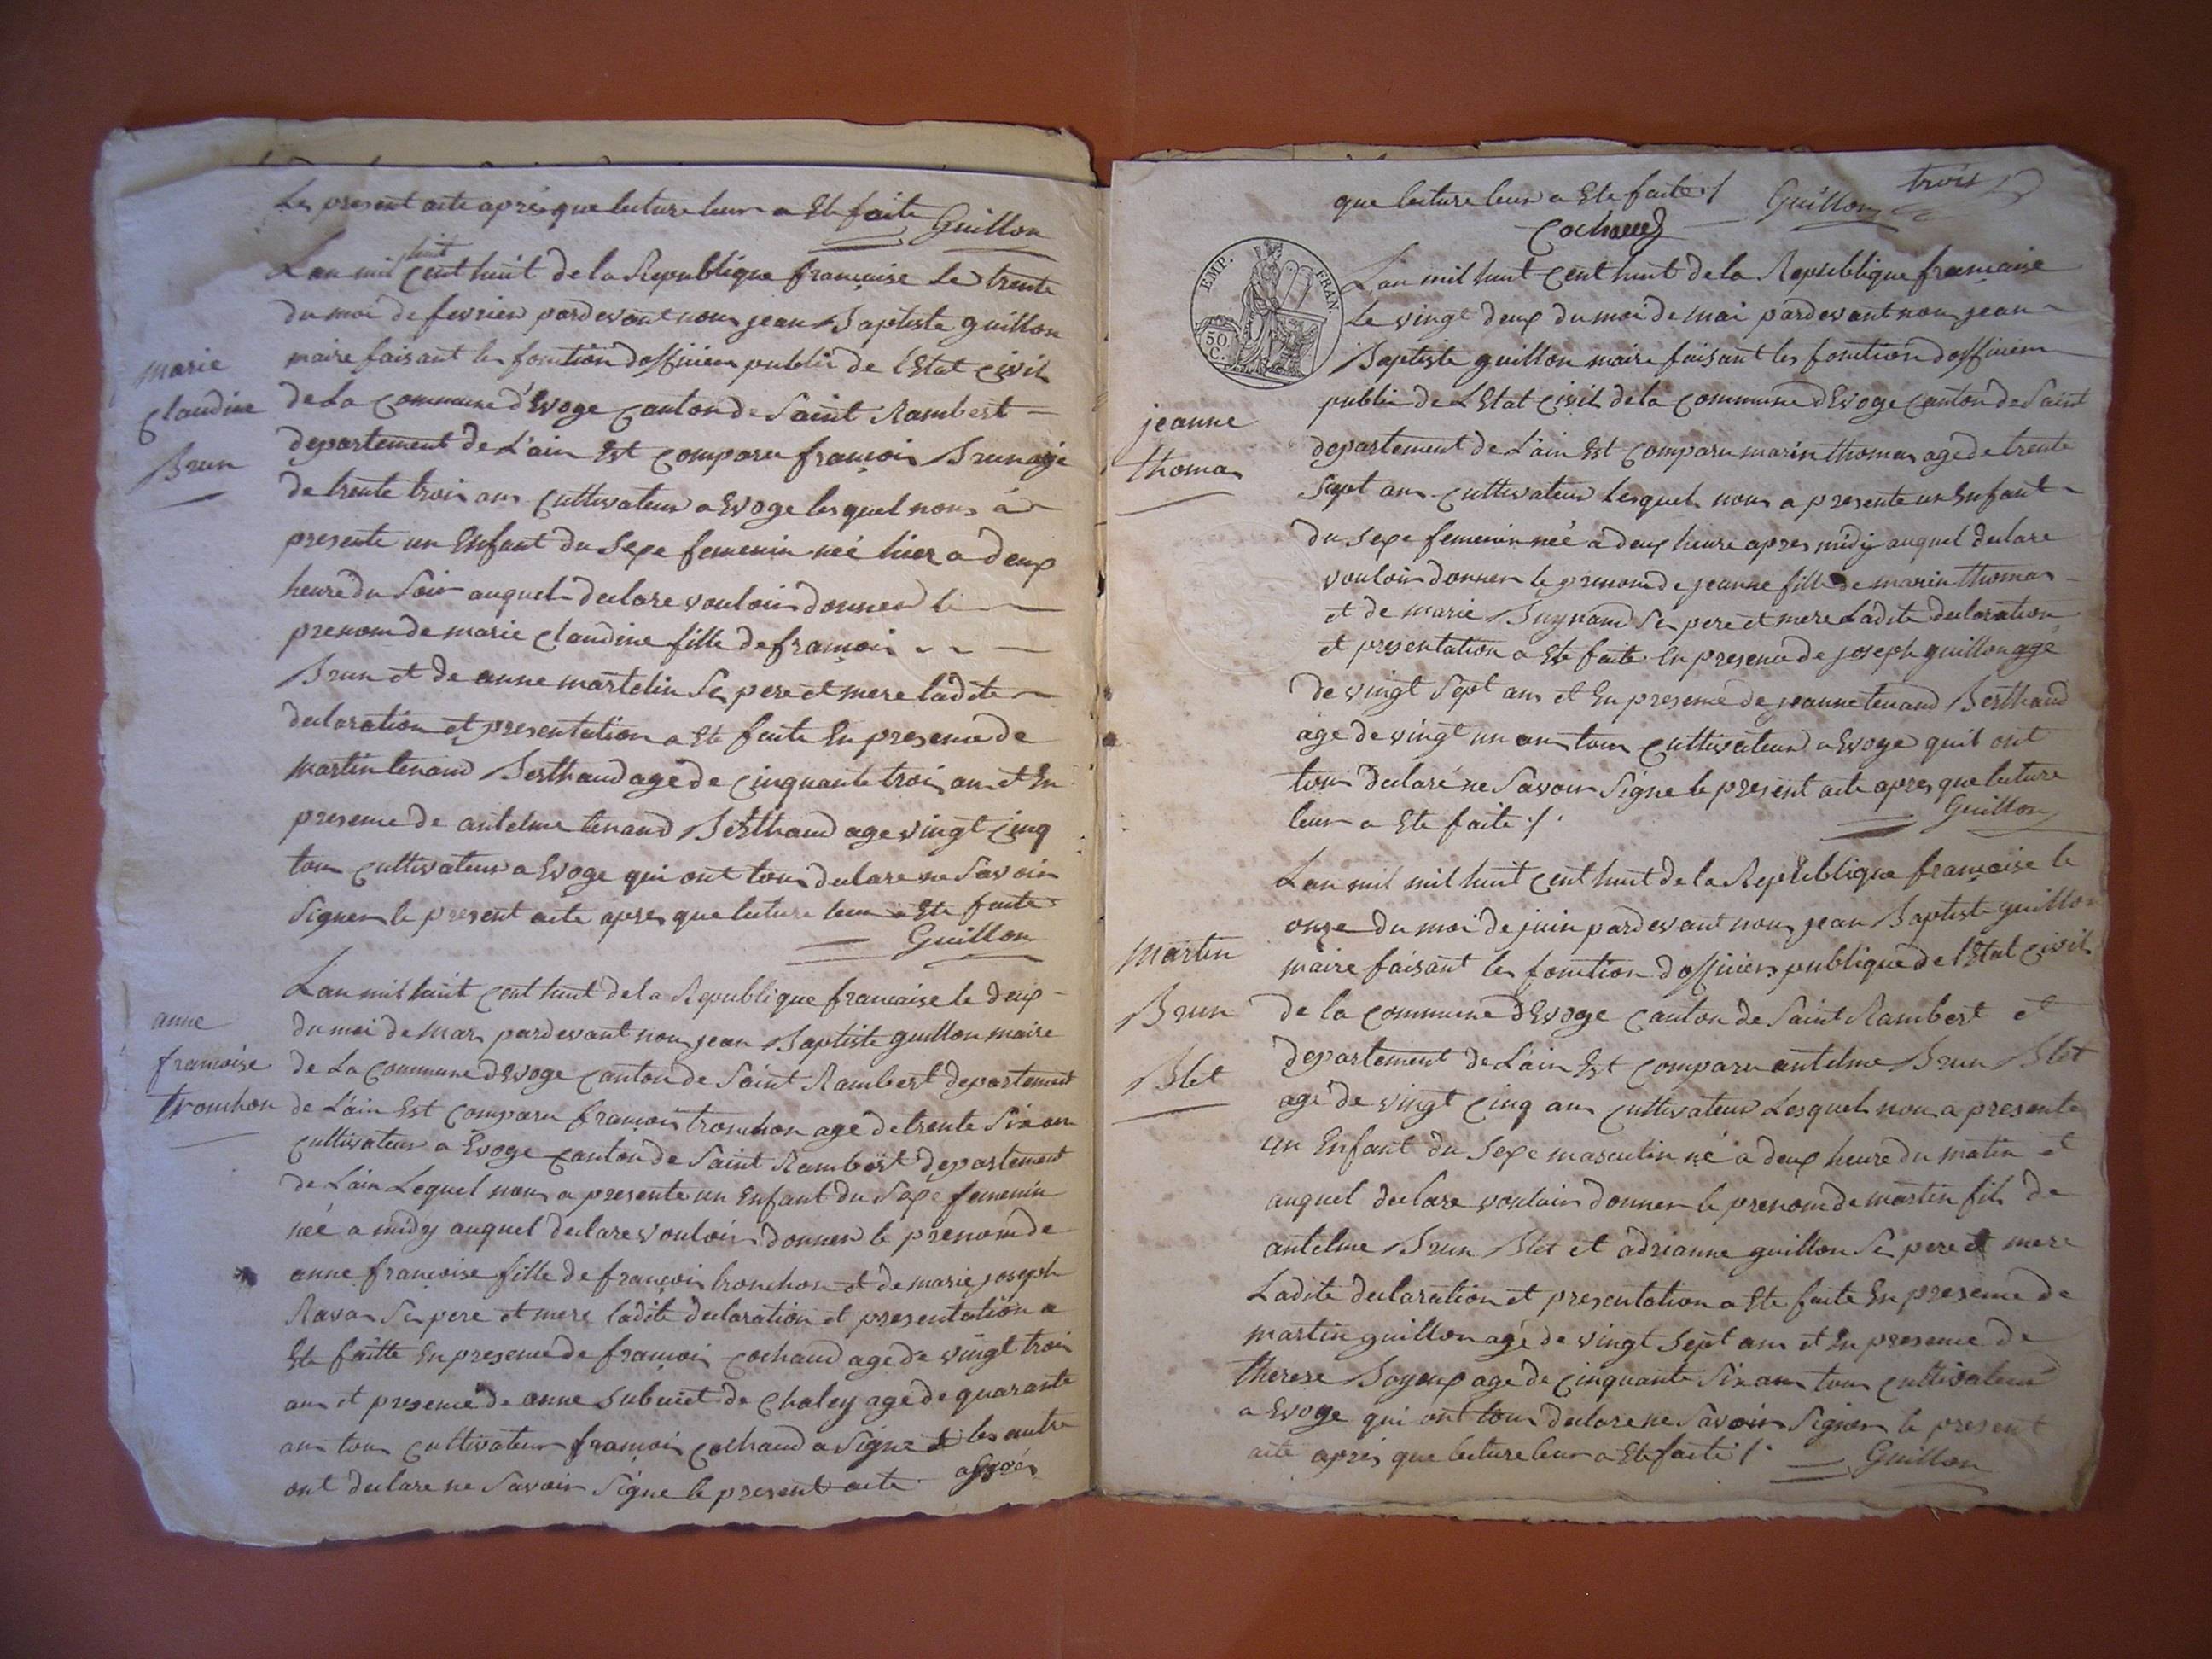 Le present acte après que lecture leur a Ete faite
Guillon
Lan mil huit Cent huit de la Republique francaise Le trente
du moi de fevrier pardevant nous jean Baptiste guillon
maire faisant les fonction dofficier public de l'Etat Civil
marie
claudine
Brun
de La Commune d'Evoge Canton de Saint Rambert
departement de L'ain Est Comparu francois Brun agé
de trente trois ans Cultivateur a Evoge lesquel nous à
presente un Enfant du Sexe femenin née hier a deux
heure du Soir auquel declare vouloir donner le
prenom de marie Claudine fille de francois
Brun et de anne martelin Ses pere et mere ladite
declaration et presentation a Ete faite En presence de
martin tenand Berthaud age de Cinquante trois ans et En
presence de antelme tenand Berthaud age vingt Cinq
tous Cultivateur a Evoge qui ont tous declare ne Savoir
Signer le present acte apres que lecture leur a Ete faite
Guillon
Lan mil huit Cent huit de la Republique francaise le deux
anne
francoise
tronchon
du moi de mars pardevant nous jean Baptiste guillon maire
de La Commune d'Evoge Canton de Saint Rambert departement
de L'ain Est Comparu francois tronchon age de trente Six ans
Cultivateur a Evoge Canton de Saint Rambert departement
de Lain Lequel nous a presente un Enfant du Sexe femenin
née a midy auquel declare vouloir donner le prenom de
anne francoise fille de francois tronchon et de marie joseph
Ravas Ses pere et mere ladite declaration et presentation a
Ete faitte En presence de francois Cochaud age de vingt trois
ans et presence de anne Subuiet de Chaley age de quarante
ans tous Cultivateur francois Cochaud a Signe et les autre
ont declare ne Savoir Signe le present acte après
trois
que lecture leur a Ete faite ./
Guillon
Cochaud
EMP. FRAN
50
C.
Lan mil huit Cent huit de la Republique francaise
Le vingt deux du moi de mai pardevant nous jean
Baptiste guillon maire faisant les fonction dofficier
public de L'Etat Civil de la Commune d'Evoge Canton de Saint
jeanne
thomas
departement de L'ain Est Comparu marin thomas age de trente
Sept ans Cultivateur Lesquel nous a presente un Enfant
du Sexe femenin née à deux heure apres midy auquel declare
vouloir donner le prenom de jeanne fille de marin thomas
et de marie Buynand Ses pere et mere Ladite declaration
et presentation a Ete faite En presence de joseph guillon agé
de vingt Sept ans et En presence de jeanne tenand Berthaud
age de vingt un ans tous Cultivateur a Evoge quil ont
tous declaré ne Savoir Signe le present acte apres que lecture
leur a Ete faite ./.
Guillon
Lan mil mil huit Cent huit de la Republique francaise le
onze du moi de juin pardevant nous jean Baptiste guillon
maire faisant les fonction dofficier publique de l'Etat Civil
martin
Brun
Blet
de la Commune d'Evoge Canton de Saint Rambert et
departement de L'ain Est Comparu antelme Brun Blet
agé de vingt Cinq ans Cultivateur Lesquel nous a presente
un Enfant du Sexe masculin né a deux heure du matin et
auquel declare vouloir donner le prenom de martin fils de
antelme Brun Blet et adrianne guillon Ses pere et mere
Ladite declaration et presentation a Ete faite En presence de
martin guillon agé de vingt Sept ans et En presence de
therese Boyeux age de Cinquante Six ans tous Cultivateur
a Evoge qui ont tous declare ne Savoir Signer le present
acte après que lecture leur a Ete faite ./.
Guillon